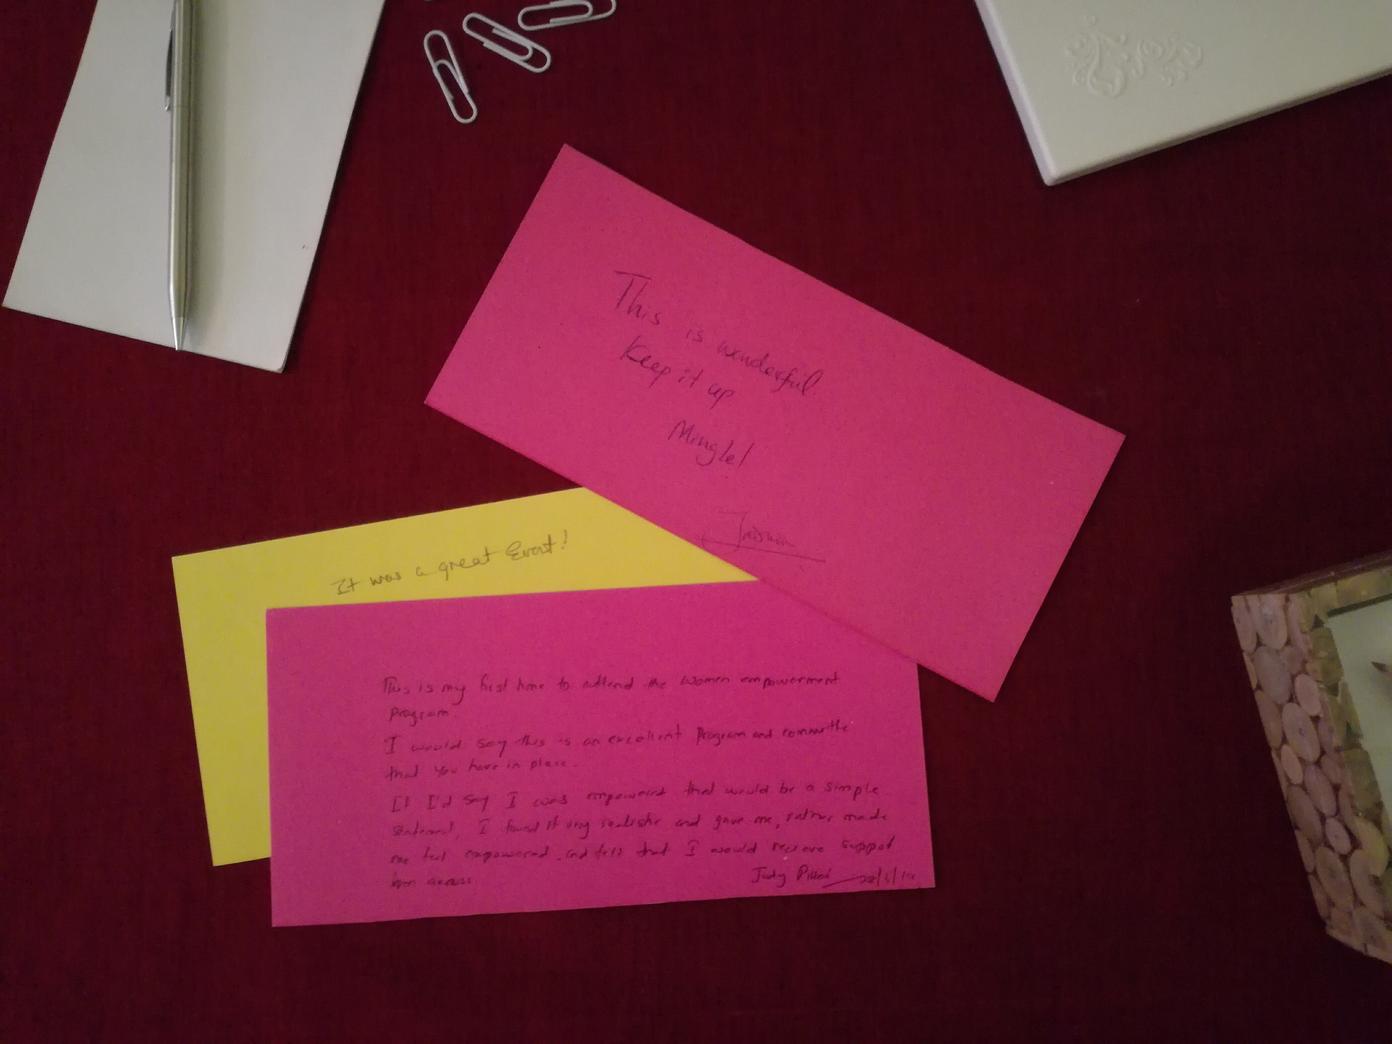 This is wonderful
Keep it up
Mingle!
It was a great Event!
This is my first time to attend the women empowerment
Program.
I would say this is an excellent Program and committe
that you have in place.
If I'd say I was empowered that would be a simple
statement, I found it very realistic and gave me, rather made
me feel empowered and felt that I would receive support
from
Judy